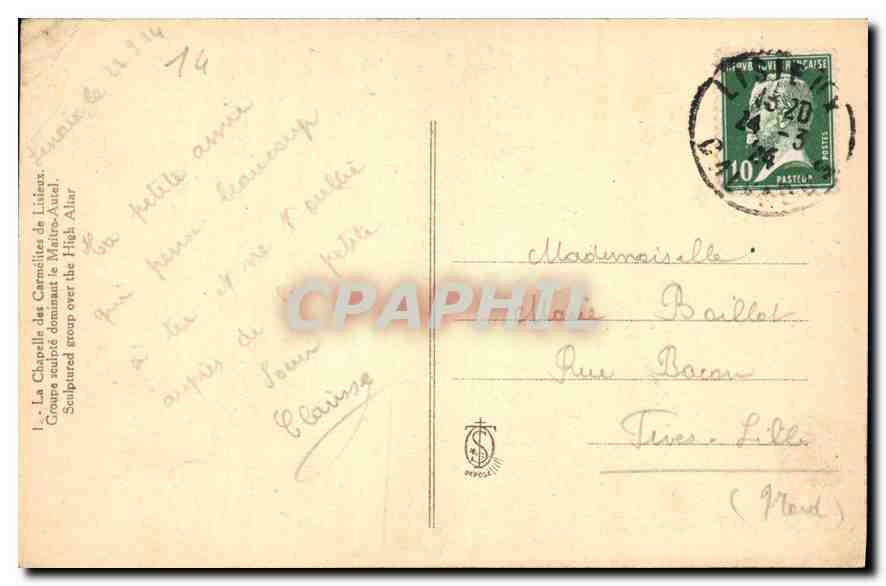 le 23.3.24
14
Ta petite amie
qui pense beaucoup
à toi et ne t'oublie
auprès de petite
Soeur
Clarisse
1. - La Chapelle des Carmélites de Lisieux.
Groupe sculpté dominant le Maître-Autel.
Sculptured group over the High Altar
REPUBLIQUE FRANÇAISE
POSTES
10
PASTEUR
LISIEUX
15 20
24 - 3
24
CALVADOS
Mademoiselle
Marie Baillot
Rue Bacon
Fives-Lille
(Nord)
DEPOSE
CPAPHIL